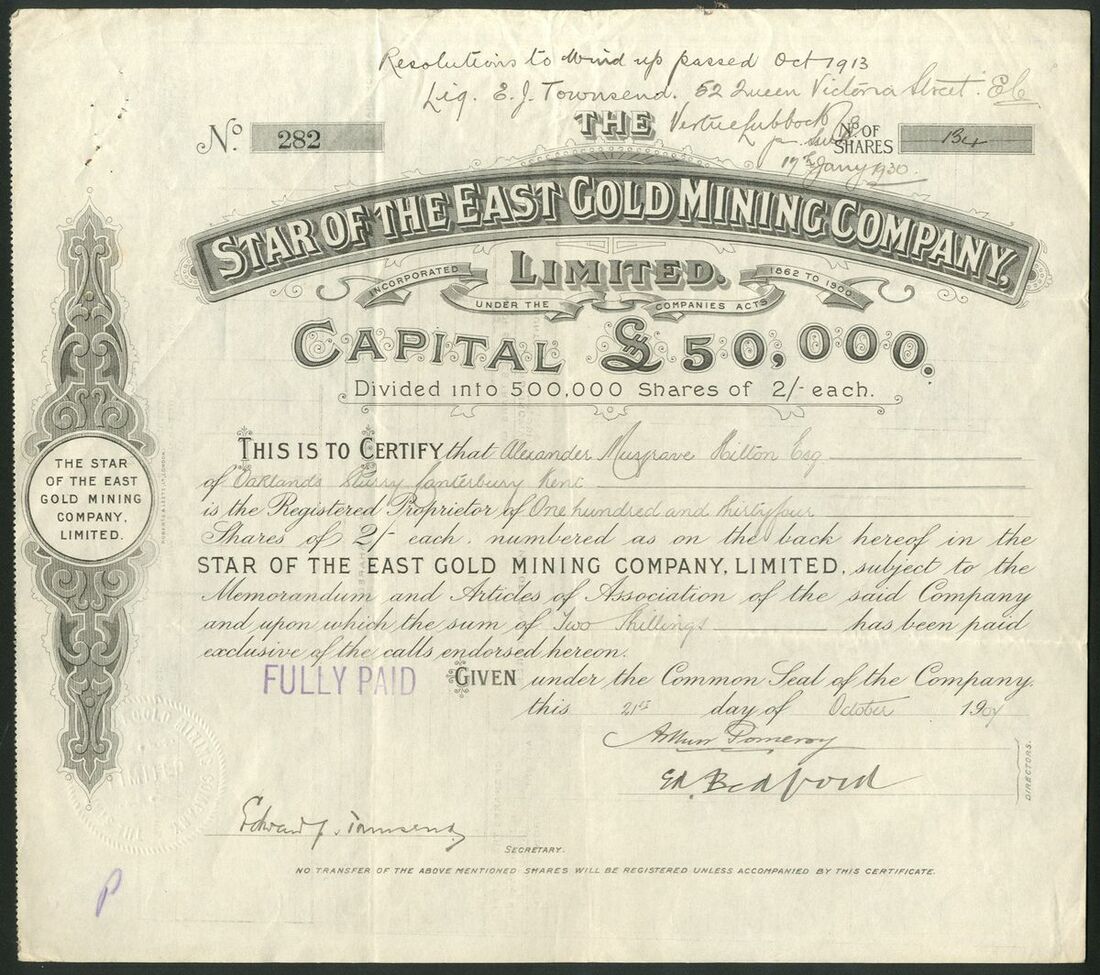 Resolutions to wind up passed Oct 1913
Liq. E. J. Townsend. 62 Queen Victoria Street. EC
No. 282
THE
No. OF SHARES 134
17th Jany 1930.
STAR OF THE EAST GOLD MINING COMPANY,
LIMITED.
INCORPORATED UNDER THE COMPANIES ACTS 1862 TO 1900
CAPITAL £50,000.
Divided into 500,000 Shares of 2/- each.
THIS IS TO CERTIFY that Alexander Musgrave Hilton Esq
of Oaklands Sturry Canterbury Kent
is the Registered Proprietor of One hundred and thirtyfour
Shares of 2/- each, numbered as on the back hereof in the
STAR OF THE EAST GOLD MINING COMPANY, LIMITED, subject to the
Memorandum and Articles of Association of the said Company
and upon which the sum of Two Shillings has been paid
exclusive of the calls endorsed hereon.
FULLY PAID
GIVEN under the Common Seal of the Company.
this 21st day of October 1904
Arthur Pomeroy
Ed. Bedford
DIRECTORS.
Edward J. Townsend
SECRETARY.
NO TRANSFER OF THE ABOVE MENTIONED SHARES WILL BE REGISTERED UNLESS ACCOMPANIED BY THIS CERTIFICATE.
THE STAR
OF THE EAST
GOLD MINING
COMPANY,
LIMITED.
P